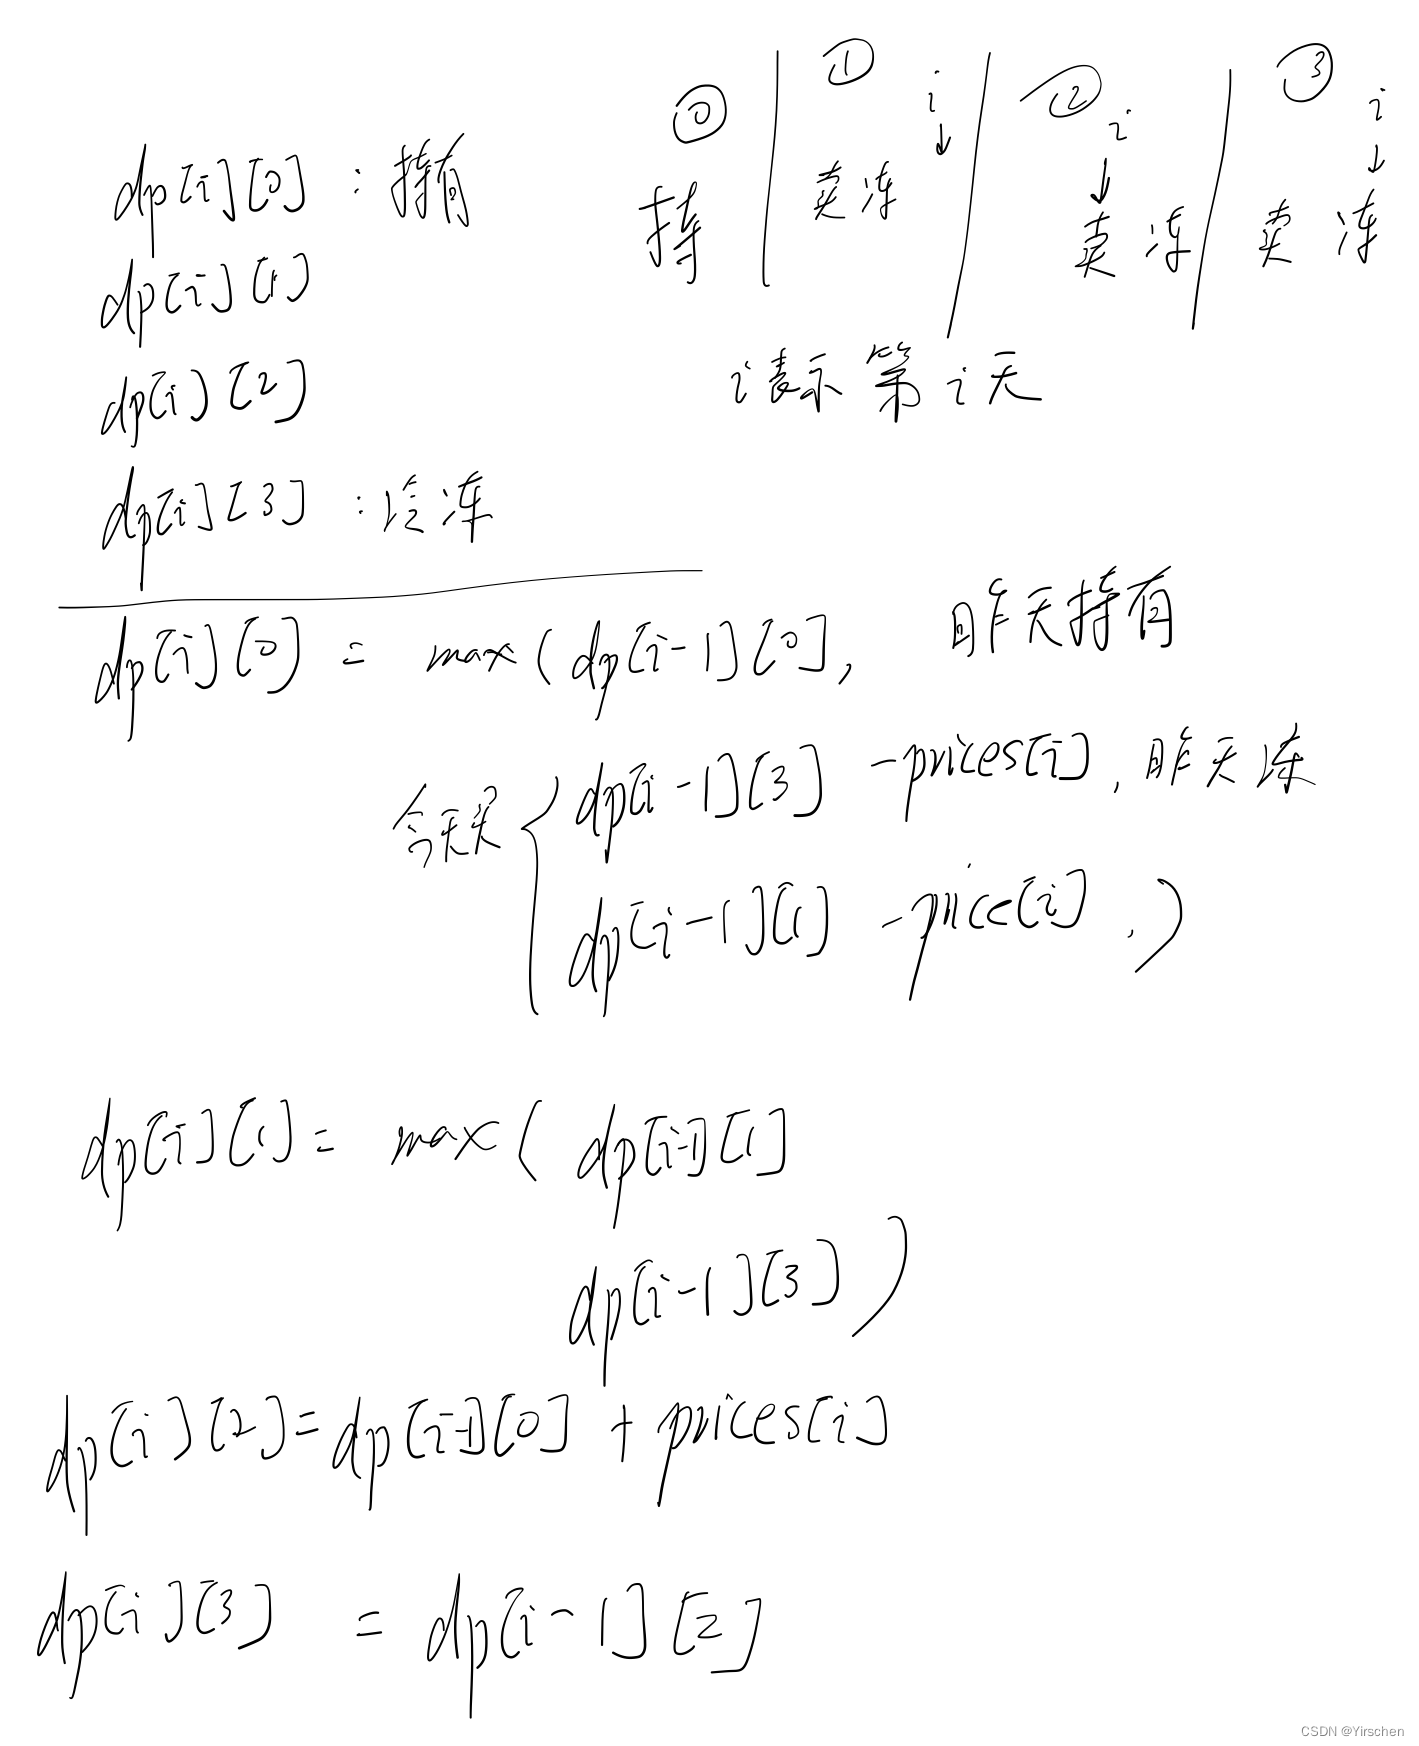 ⓪ ① i ② i ③ i
持 卖 冻 卖 冻 卖 冻
dp[i][0] : 持有
dp[i][1]
i表示 第 i 天
dp[i][2]
dp[i][3] : 冷冻
dp[i][0] = max(dp[i-1][0], 昨天持有
今天买 { dp[i-1][3] -prices[i], 昨天冻
dp[i-1][1] -price[i] ,)
dp[i][1] = max( dp[i-1][1]
dp[i-1][3] )
dp[i][2]=dp[i-1][0] + prices[i]
dp[i][3] = dp[i-1][2]
CSDN @Yirschen